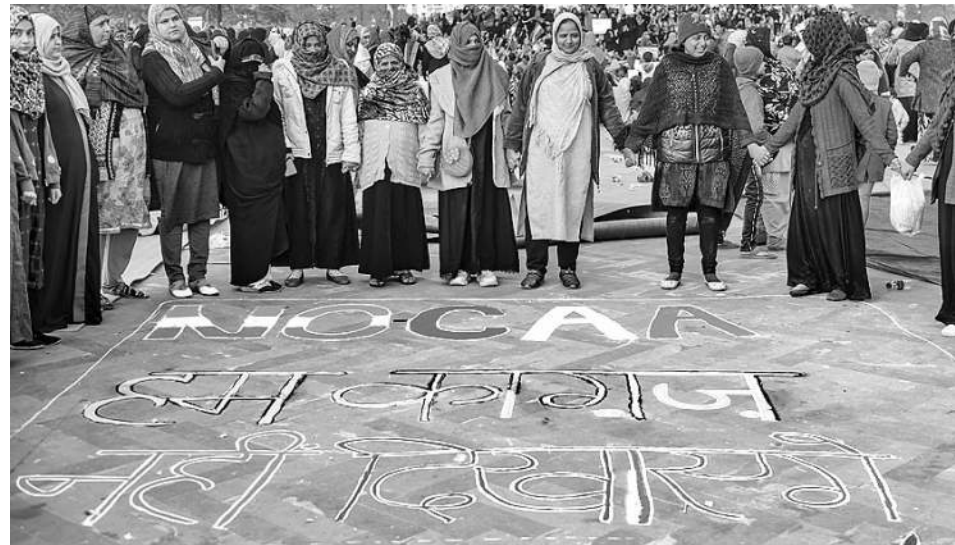 NO-CAA
हम काग़ज़
नहीं दिखाएंगे